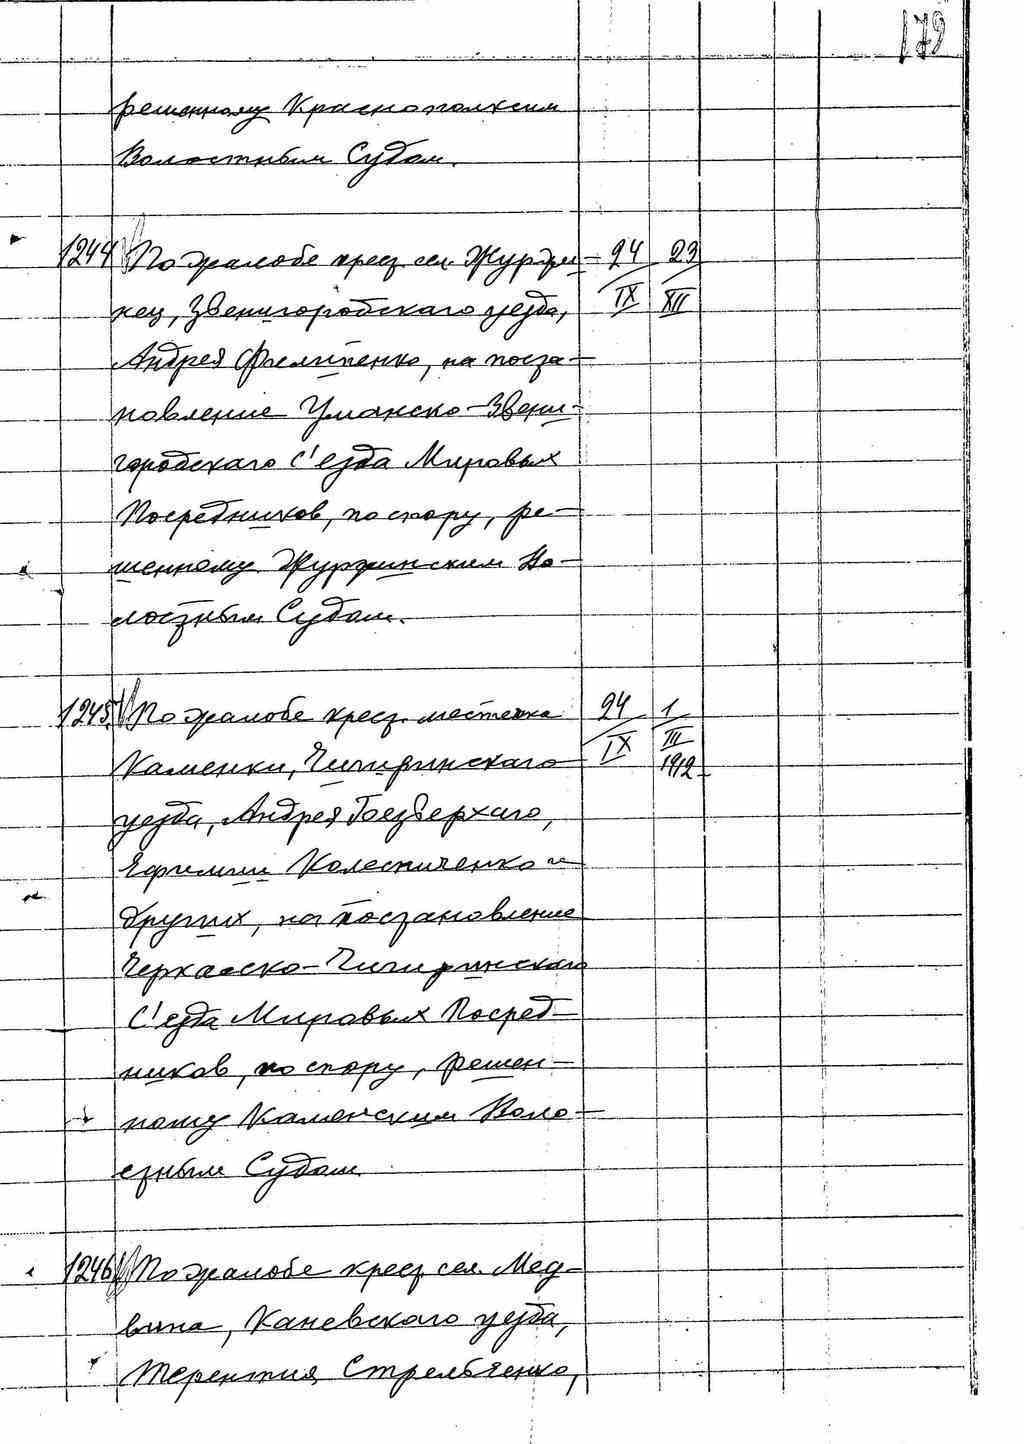 179
решенному Краснопольским
Волостным Судом.
1244 По жалобе крест. сел. Журжи- 24/IX 23/XII
нец, Звенигородскаго уезда,
Андрея Филипенко, на поста-
новление Уманско-Звени-
городскаго С'езда Мировых
Посредников, по спору, ре-
шенному Журжинским Во-
лостным Судом.
1245 По жалобе крест. местечка 24/IX 1/III 1912
Каменки, Чигиринскаго
уезда, Андрея Безверхаго,
Ефимии Колесниченко и
других, на постановление
Черкасско-Чигиринскаго
С'езда Мировых Посред-
ников, по спору, решен-
ному Каменским Воло-
стным Судом.
1246 По жалобе крест. сел. Мед-
вина, Каневскаго уезда,
Терентия Стрельченко,